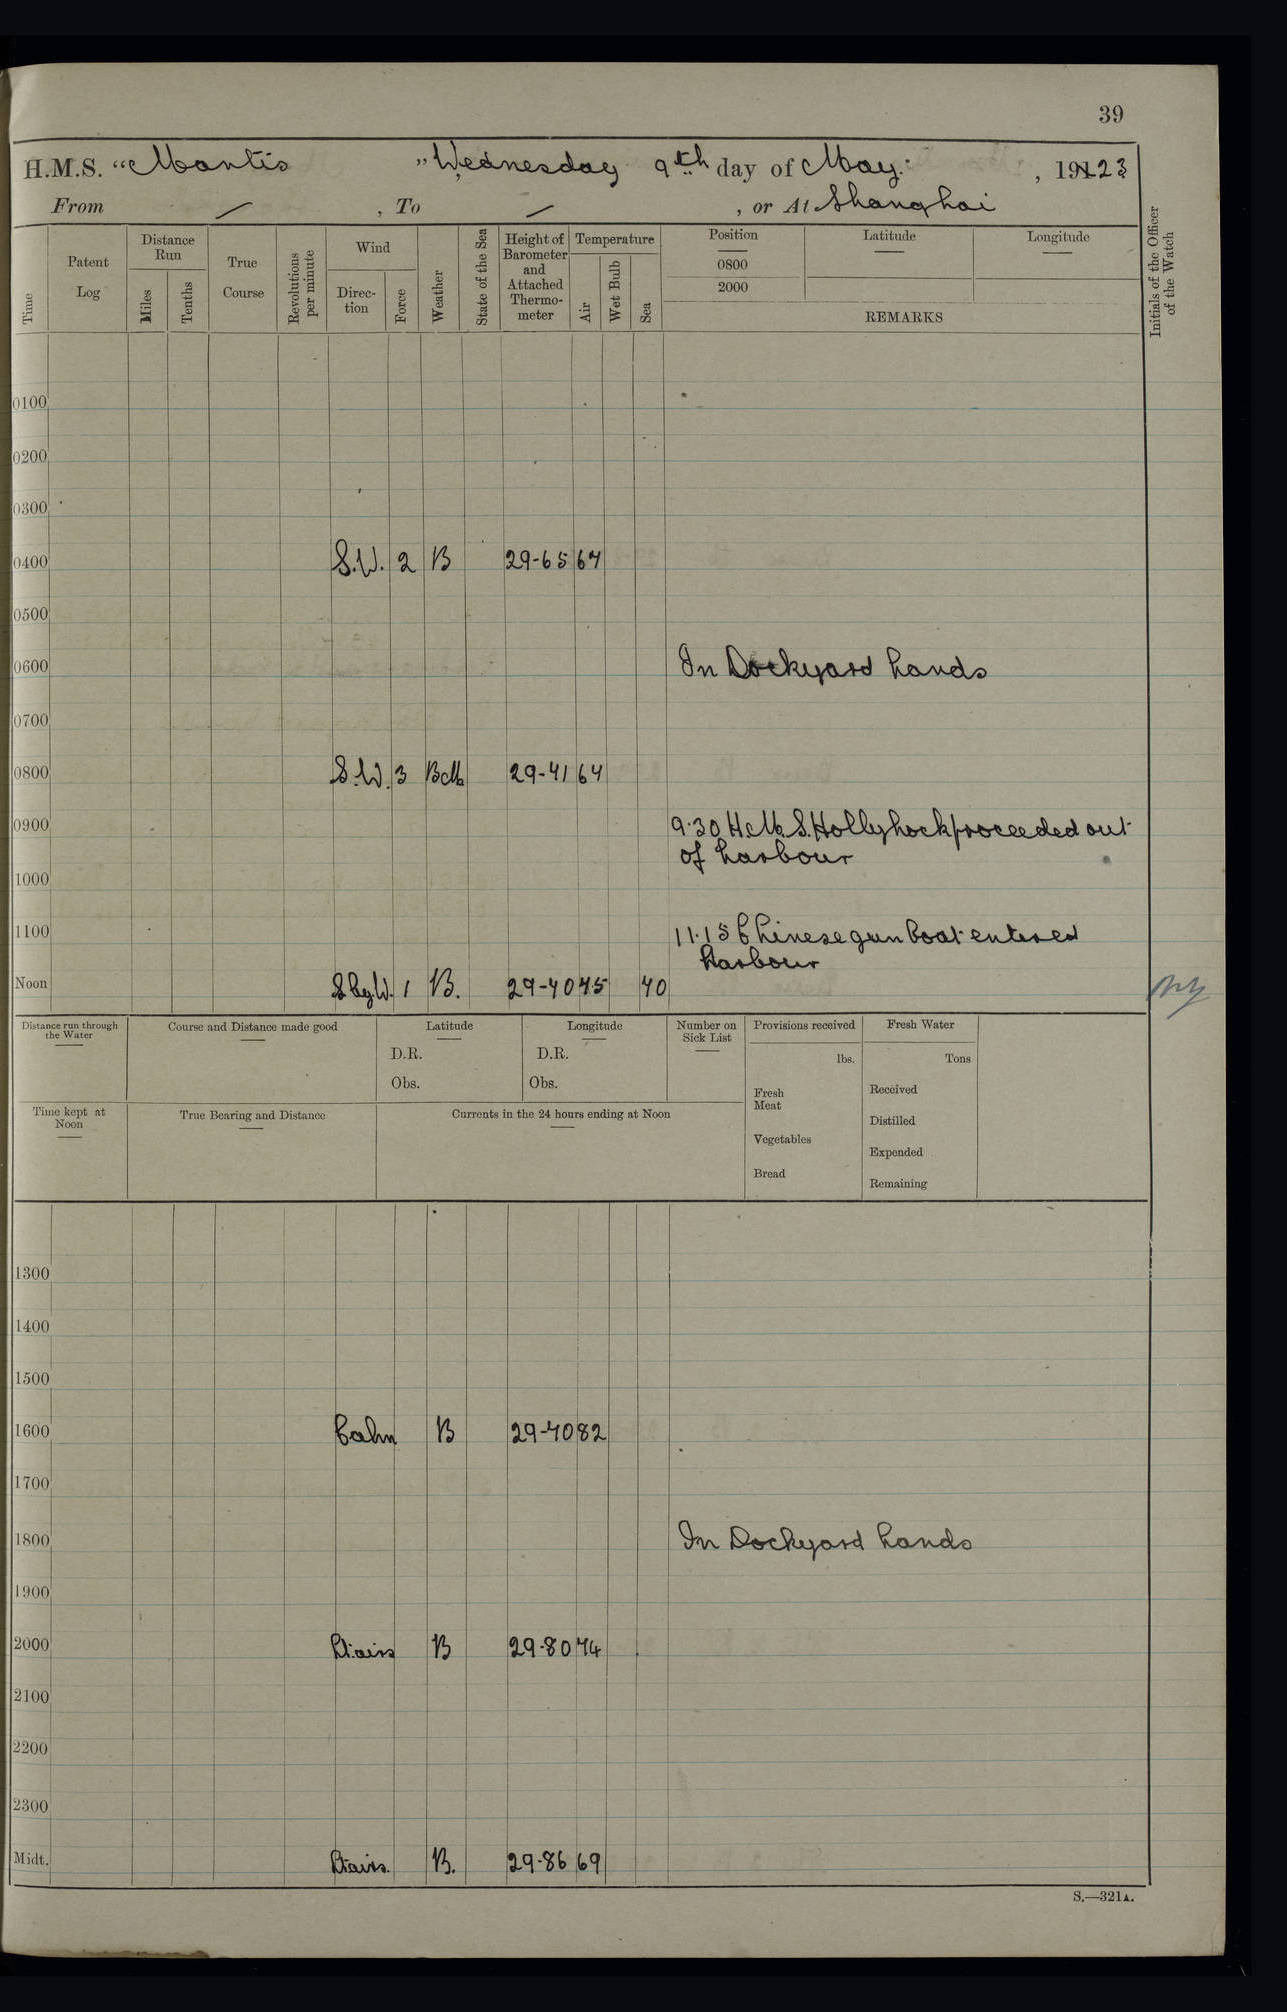 39
H.M.S. “Mantis ” Wednesday 9th day of May: , 19123
From / , To / , or At Shanghai
Time
Patent Log
Distance Run
Miles
Tenths
True Course
Revolutions per minute
Wind
Direc-tion
Force
Weather
State of the Sea
Height of Barometer and Attached Thermo-meter
Temperature
Air
Wet Bulb
Sea
Position
0800
2000
Latitude
Longitude
REMARKS
Initials of the Officer of the Watch
0100
0200
0300
0400 S.W. 2 B 29-65 67
0500
0600 In Dockyard hands
0700
0800 S.W. 3 BM 29-41 64
0900 9.30 H.M.S. Hollyhock proceeded out
of harbour
1000
1100 11.15 Chinese gun boat entered
harbour
Noon S by W. 1 B. 29-70 75 70
Distance run through the Water
Course and Distance made good
Latitude
D.R.
Obs.
Longitude
D.R.
Obs.
Number on Sick List
Provisions received
lbs.
Fresh Meat
Vegetables
Bread
Fresh Water
Tons
Received
Distilled
Expended
Remaining
Time kept at Noon
True Bearing and Distance
Currents in the 24 hours ending at Noon
1300
1400
1500
1600 Calm B 29-70 82
1700
1800 In Dockyard hands
1900
2000 Lt airs B 29-80 74
2100
2200
2300
Midt. Lt airs. B. 29-86 69
S.—321A.